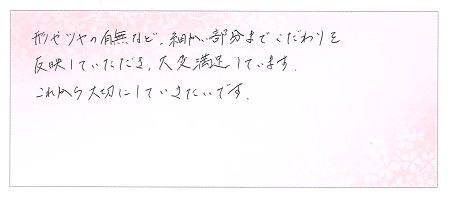 形やツヤの有無など、細かい部分までこだわりを
反映していただき、大変満足しています。
これから大切にしていきたいです。